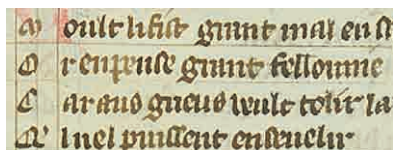 M oult li fist grant mal en
O r enpense grant fellounie
C ar aus wult tolir la
l nel puissent enseuelir